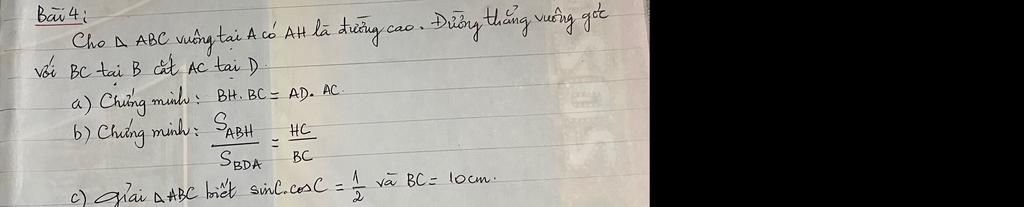 Bài 4:
Cho Δ ABC vuông tại A có AH là đường cao. Đường thẳng vuông góc
với BC tại B cắt AC tại D.
a) Chứng minh: BH. BC = AD. AC.
b) Chứng minh: S_ABH / S_BDA = HC / BC
c) Giải Δ ABC biết sinC.cosC = 1/2 và BC = 10cm.